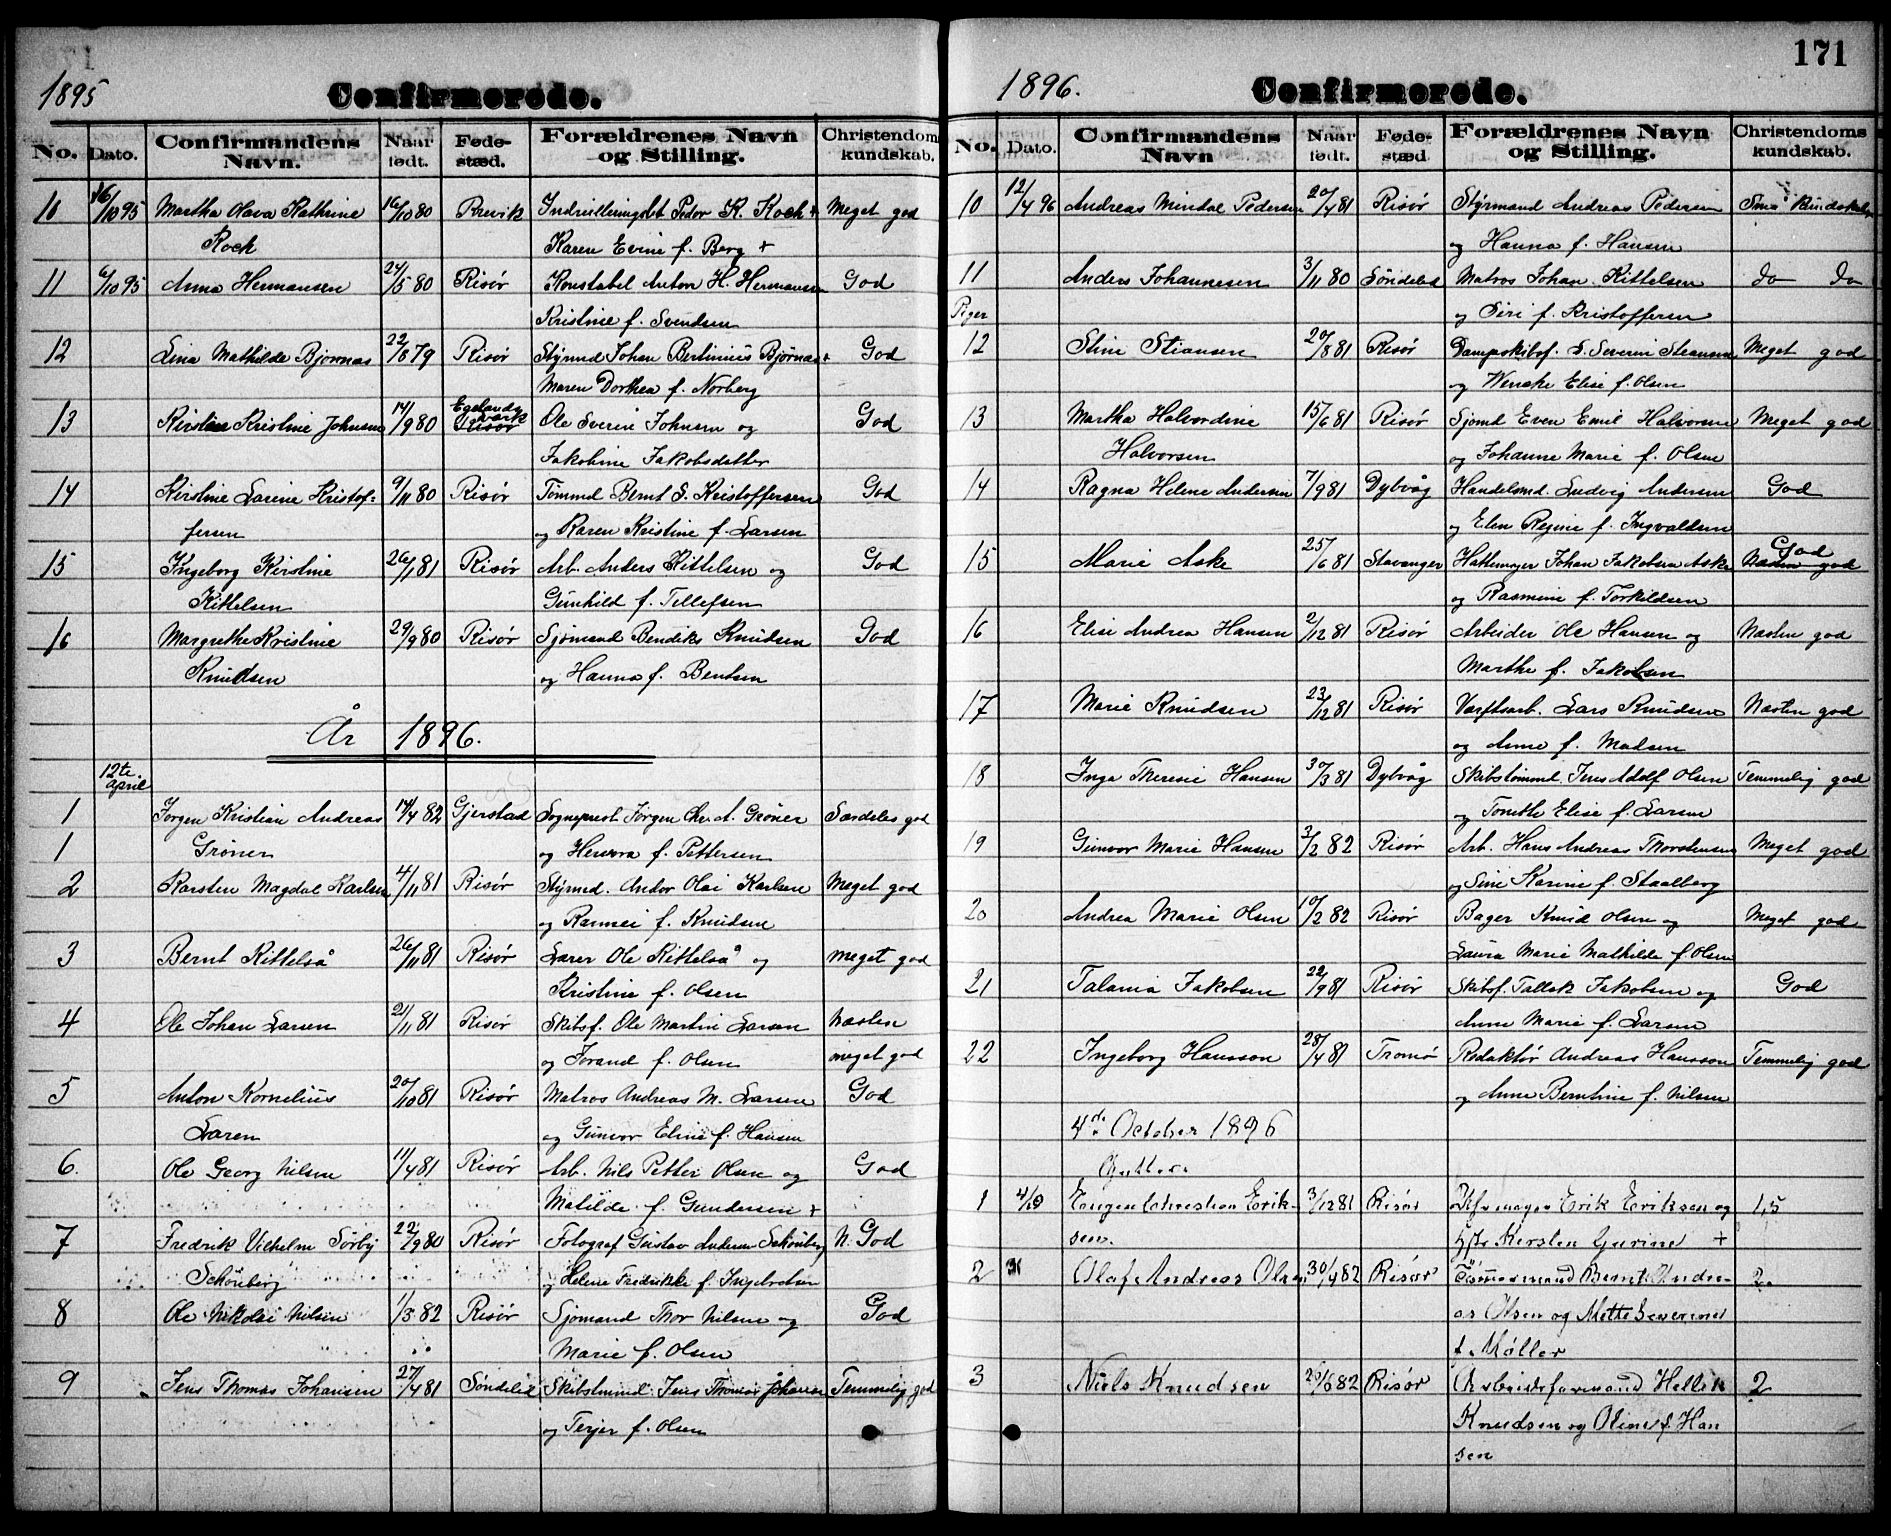 1895 Confirmerede.
No. Dato. Confirmandens Navn. Naar født. Fødestæd. Forældrenes Navn og Stilling. Christendomskundskab.
10 16/10 95 Martha Olava Kathrine 16/10 80 Brevik Peder K. Koch + Meget god
Koch Karen Evine f. Berg +
11 6/10 95 Anna Hermansen 24/5 80 Risør Konstabel Anton H. Hermansen God
Kristine f. Svendsen
12 Lina Mathilde Bjørnaas 22/8 79 Risør Styrmd Johan Bertinius Bjørnaas + God
Maren Dorthea f. Norberg
13 Kirstine Kristine Johnsen 14/9 80 Egelands værk Risør Ole Severin Johnsen og God
Jakobine Jakobsdatter
14 Kirstine Larine Kristof- 9/11 80 Risør Tømmd Bernt S. Kristoffersen God
fersen og Karen Kristine f. Larsen
15 Ingeborg Kirstine 26/1 81 Risør Arb. Anders Kittelsen og God
Kittelsen Gunhild f. Tellefsen
16 Margrethe Kristine 29/9 80 Risør Sjømand Bendiks Knudsen God
Knudsen og Hanna f. Bentsen
År 1896.
12te April
1 Jørgen Kristian Andreas 14/4 82 Gjerstad Sogneprest Jørgen Chr. A. Grøner Særdeles god
1 Grøner og Hervora f. Pettersen
2 Karsten Magdal Karlsen 4/11 81 Risør Styrmd. Andor Olai Karlsen Meget god
og Rannei f. Knudsen
3 Bernt Kittelså 26/11 81 Risør Lærer Ole Kittelså og meget god
Kristine f. Olsen
4 Ole Johan Larsen 21/11 81 Risør Skibsf. Ole Martin Larsen Næsten
og Torand f. Olsen meget god
5 Anton Kornelius 20/10 81 Risør Matros Andreas M. Larsen God
Larsen og Gunvor Eline f. Hansen
6. Ole Georg Nilsen 11/4 81 Risør Arb. Nils Petter Olsen og God
Matilde f. Gundersen +
7 Fredrik Vilhelm Sørby 22/9 80 Risør Fotograf Gustav Andersen Schønberg N. God
Schønberg og Helene Fredrikke f. Ingebretsen
8 Ole Nikolai Nilsen 1/3 82 Risør Sjømand Thor Nilsen og God
Marie f. Olsen
9 Jens Thomas Johansen 27/4 81 Søndeled Skibstmmd. Jens Thomas Johansen Temmelig god
og Terjer f. Olsen
1896. Confirmerede. 171
No. Dato. Confirmandens Navn Naar født. Fødestæd Forældrenes Navn og Stilling. Christendoms kundskab.
10 12/4 96 Andreas Mindal Pedersen 20/4 81 Risør Styrmand Andreas Pedersen Små Kundskaber
og Hanna f. Hansen
11 Anders Johannesen 3/11 80 Søndeled Matros Johan Kittelsen do do
Piger og Siri f. Kristoffersen
12 Stine Stiansen 20/8 81 Risør Dampskibsf. S. Severin Steansen Meget god
og Wenche Elise f. Olsen
13 Martha Halvordine 15/6 81 Risør Sjømd Even Emil Halvorsen Meget god
Halvorsen og Johanne Marie f. Olsen
14 Ragna Helene Andersen 7/9 81 Dybvåg Handelsmd. Ludvig Andersen God
og Elen Regine f. Ingvaldsen
15 Marie Aske 25/6 81 Stavanger Hattemager Johan Jakobsen Aske God Næsten god
og Rasmine f. Torkildsen
16 Elise Andrea Hansen 2/12 81 Risør Arbeider Ole Hansen og Næsten god
Marthe f. Jakobsen
17 Marie Knudsen 23/12 81 Risør Værftsarb. Lars Knudsen Næsten god
og Anne f. Madsen
18 Inga Theresie Hansen 30/3 81 Dybvåg Skibstømmd. Jens Adolf Olsen Temmelig god
og Tomthe Elise f. Larsen
19 Gunvor Marie Hansen 3/2 82 Risør Arb. Hans Andreas Thorstensen Meget god
og Sine Karine f. Staalberg
20 Andrea Marie Olsen 10/2 82 Risør Bager Knud Olsen og Meget god
Laura Marie Mathilde f. Olsen
21 Talania Jakobsen 22/9 81 Risør Skibsf. Tallak Jakobsen og God
Anne Marie f. Larsen
22 Ingeborg Hansson 28/4 81 Tromø Redaktør Andreas Hansson Temmelig god
og Anne Berntine f. Nilsen
4de October 1896
Gutter.
1 4/10 Eugen Christian Erik- 3/12 81 Risør Erik Eriksen og 1,5
sen. Kersten Gurine +
2 Olaf Andreas Olsen 30/4 82 Risør Tømmermand Bernt Andre- 2.
as Olsen og Mette Severine
f. Møller
3 Niels Knudsen 20/6 82 Risør Arbeidsformand Helle 2
Knudsen og Oline f. Han
sen